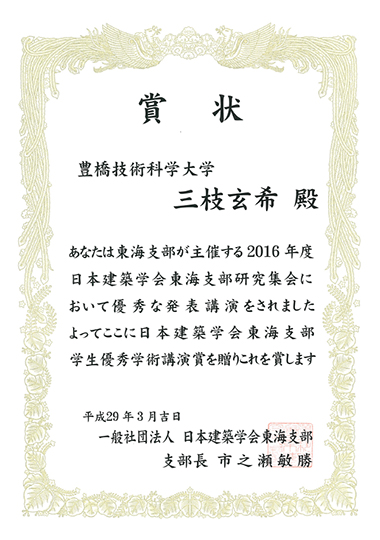 賞状
豊橋技術科学大学
三枝玄希 殿
あなたは東海支部が主催する2016年度
日本建築学会東海支部研究集会に
おいて優秀な発表講演をされました
よってここに日本建築学会東海支部
学生優秀学術講演賞を贈りこれを賞します
平成29年3月吉日
一般社団法人 日本建築学会東海支部
支部長 市之瀬敏勝